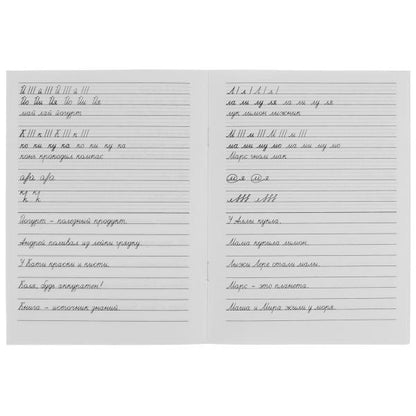 Й й Й й
Йо Йи Йя Йо Йи Йя
май лай йогурт
К к К к
ко ки ку ка ко ки ку ка
конь крокодил компас
Йогурт - полезный продукт.
Андрей поливал из лейки грядку.
У Кати краски и кисти.
Коля, будь аккуратен!
Книга - источник знаний.
Л л Л л
ла ли лу ля ла ли лу ля
лук лимон лыжник
М м М м
ма ми му мо ма ми му мо
Марс гном мак
м я м я
У Аллы кукла.
Мама купила лимон.
Лыжи Лоре стали малы.
Марс - это планета.
Маша и Мира жили у моря.